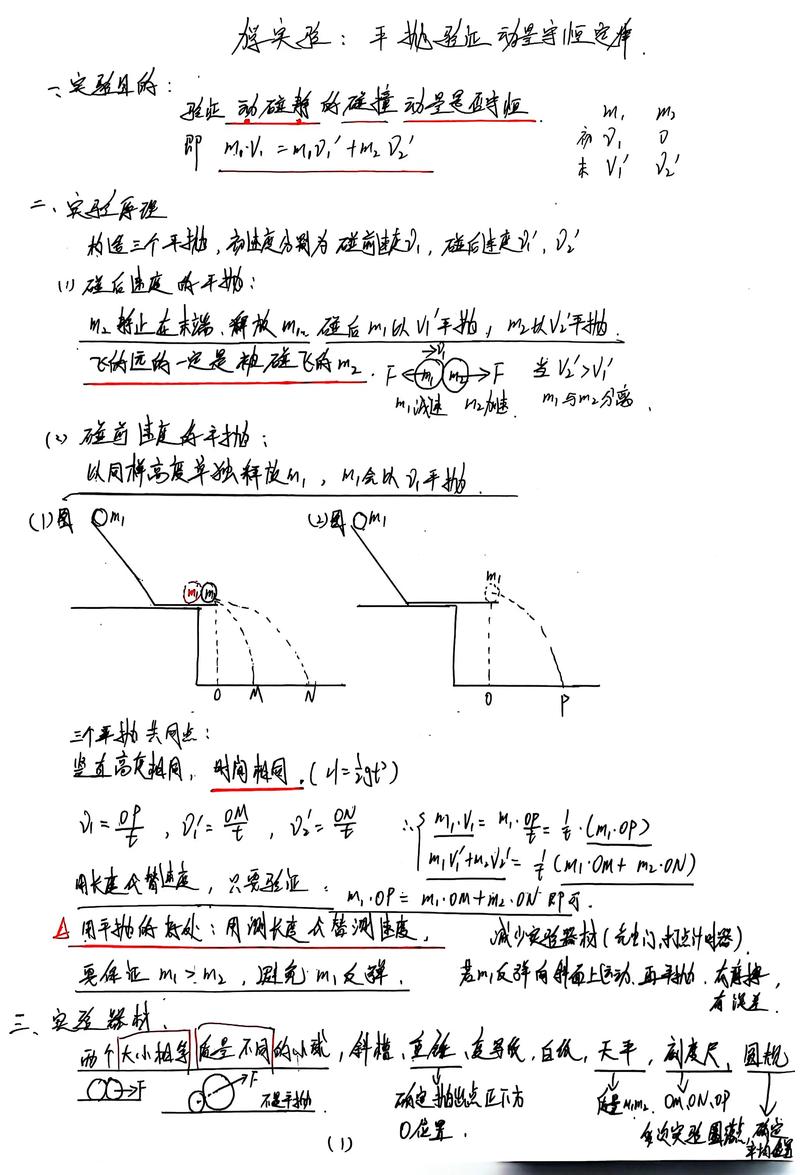 学实验：平抛验证动量守恒定律.
一、实验目的：
验证动碰静的碰撞动量是否守恒.
即 m₁·v₁ = m₁v₁′+m₂v₂′
m₁ m₂
初 v₁ 0
末 v₁′ v₂′
二、实验原理
构造三个平抛，初速度分别为碰前速度v₁，碰后速度v₁′、v₂′
(1) 碰后速度的平抛：
m₂静止在末端、释放m₁、碰后m₁以v₁′平抛，m₂以v₂′平抛.
飞的远的一定是被碰飞的m₂.
v₁
F m₁ m₂ F
m₁减速 m₂加速.
当v₂′>v₁′
m₁与m₂分离.
(2) 碰前速度的平抛：
以同样高度单独释放m₁，m₁会以v₁平抛.
(1)图 m₁
m₁ m₂
O M N
(2)图 m₁
m₁
O P
三个平抛共同点：
竖直高度相同，时间相同.(H=½gt²)
v₁=OP/t，v₁′=OM/t，v₂′=ON/t
∴{ m₁·v₁= m₁·OP/t = 1/t·(m₁·OP)
m₁v₁′+m₂v₂′= 1/t(m₁·OM+ m₂·ON)
用长度代替速度，只要验证：m₁·OP= m₁·OM+m₂·ON 即可.
△ 用平抛的好处：用测长度代替测速度.
减少实验器材(光电门,打点计时器).
要保证m₁>m₂，避免m₁反弹.
若m₁反弹向斜面上运动、再平抛.有摩擦，
有误差.
三、实验器材.
两个大小相等质量不同的小球，斜槽、重锤、复写纸、白纸，天平，刻度尺，圆规
F
F
不是平抛.
确定抛出点正下方
O位置.
质量m₁m₂.
OM,ON,OP
多次实验圆落点 确定
平均位置
(1)